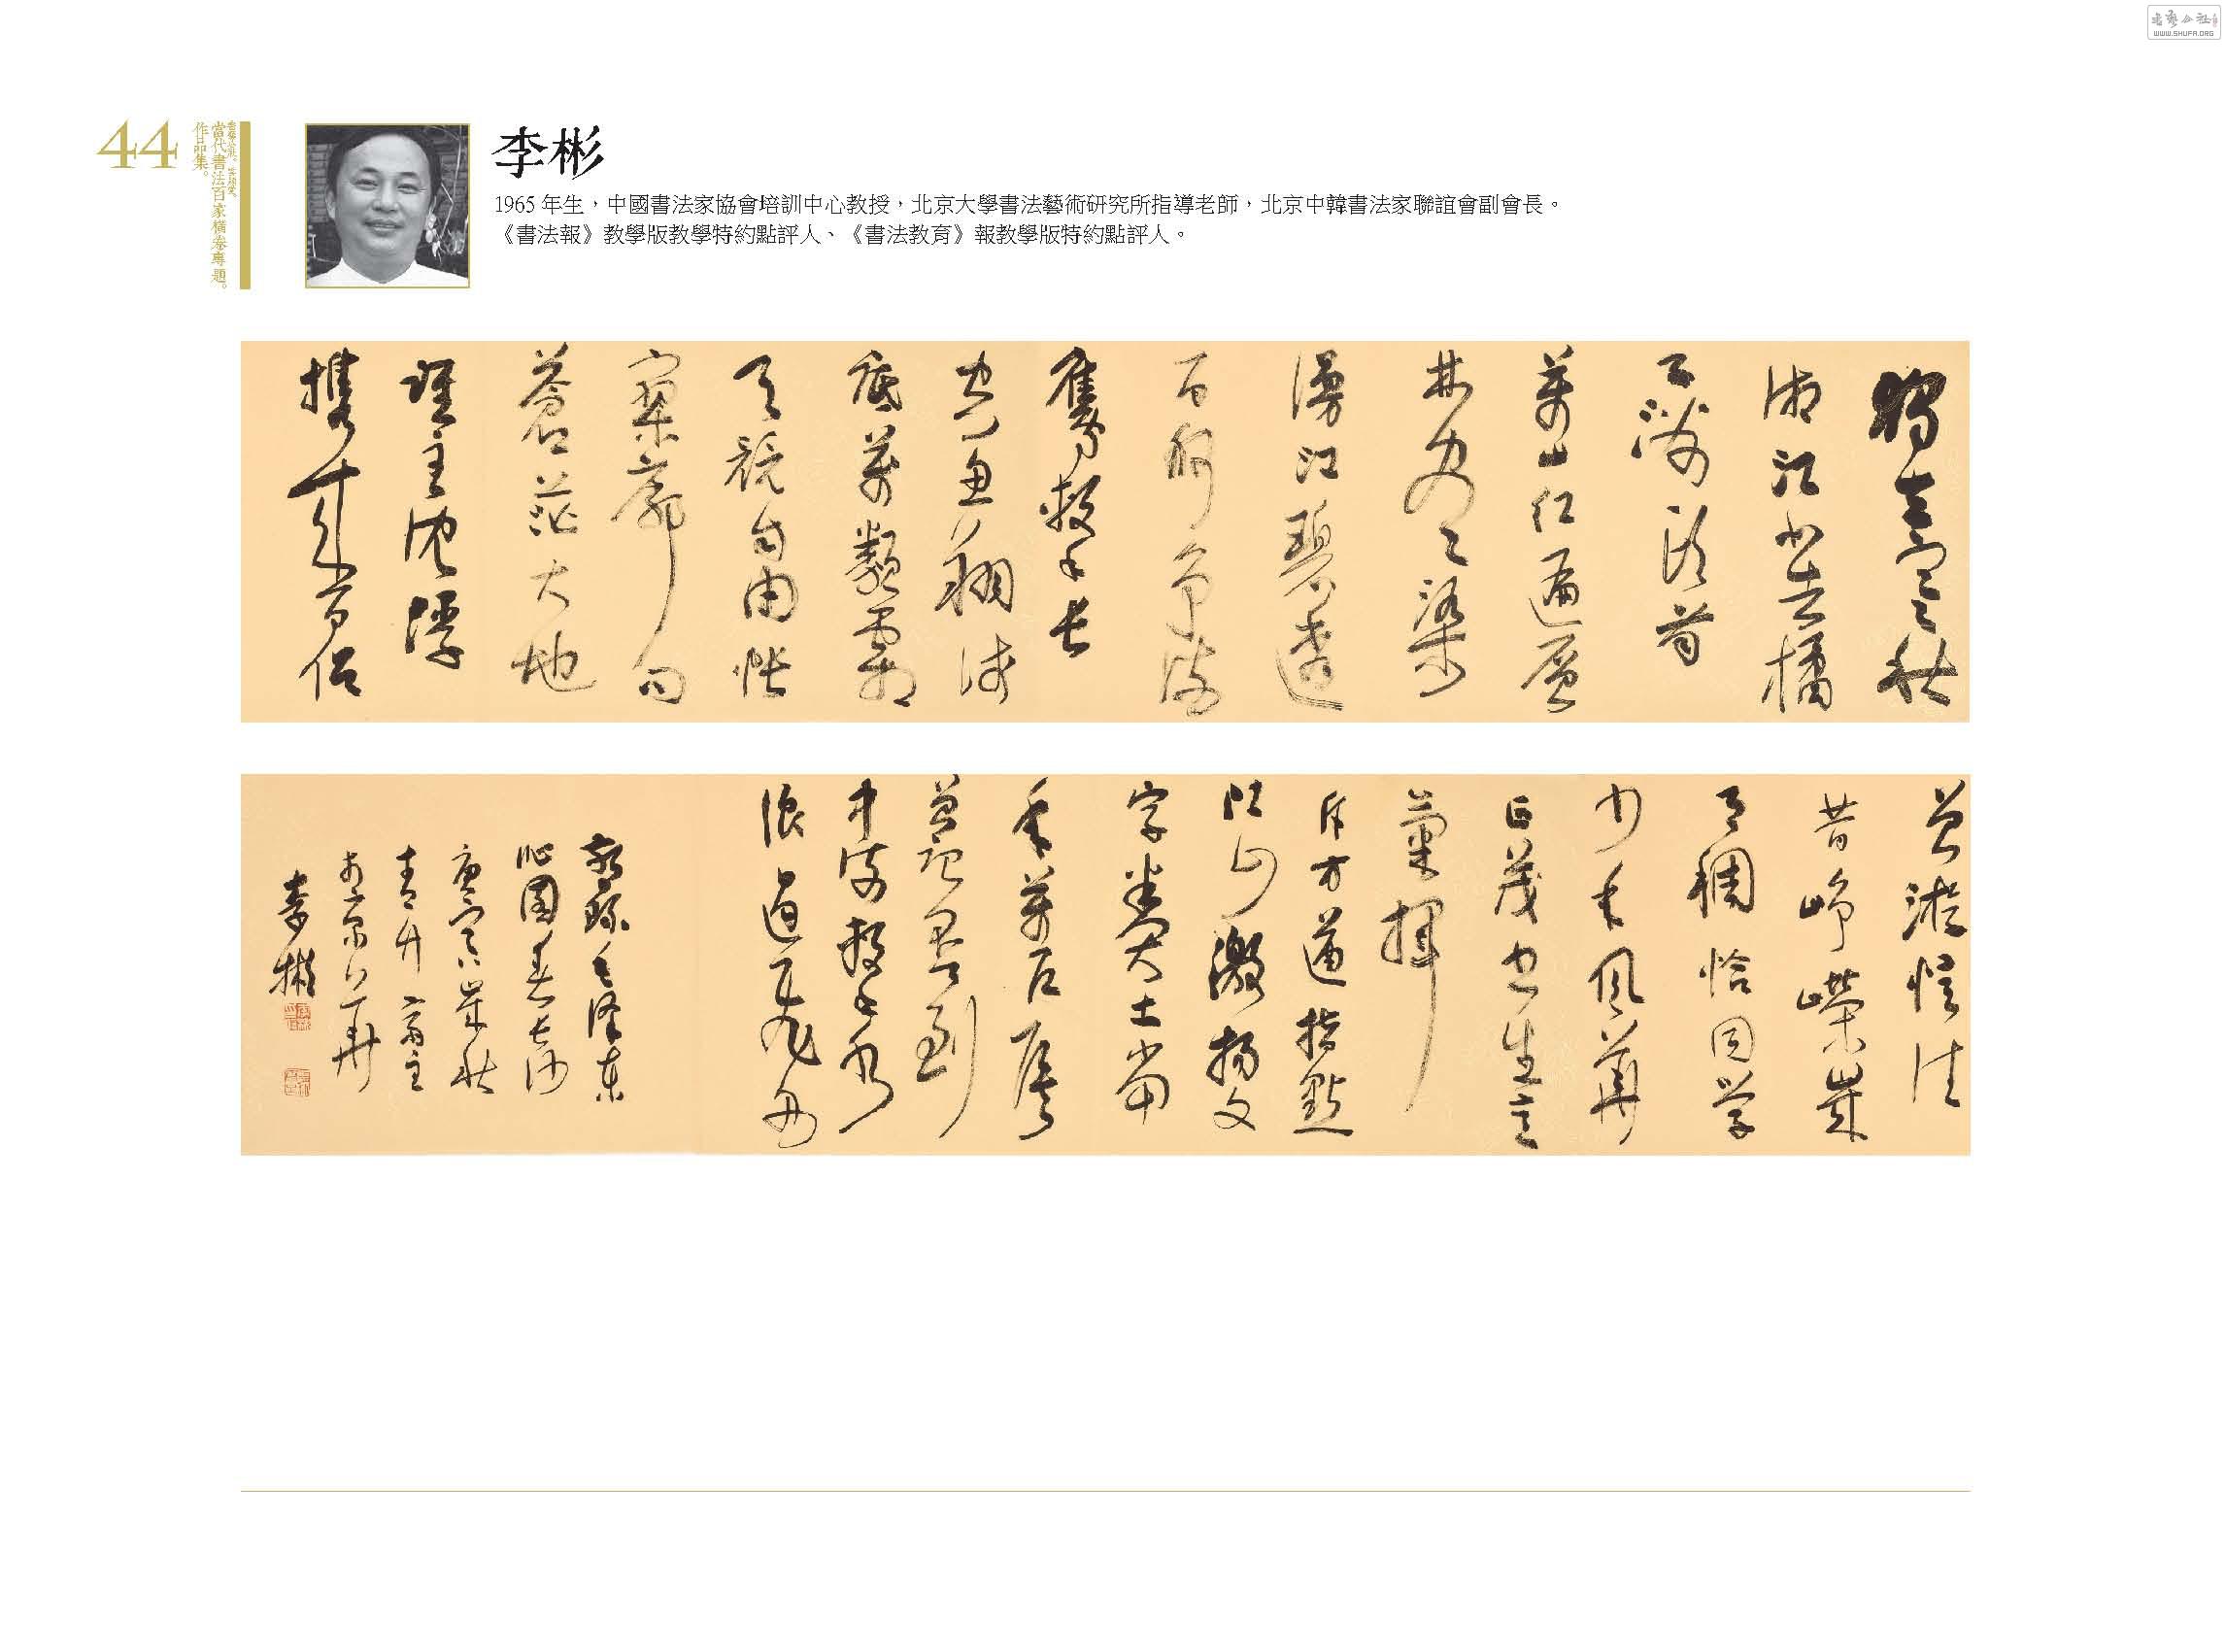 書藝公社
WWW.SHUFA.ORG
44
當代書法百家橫卷專題。
作品集。
李彬
1965 年生，中國書法家協會培訓中心教授，北京大學書法藝術研究所指導老師，北京中韓書法家聯誼會副會長。
《書法報》教學版教學特約點評人、《書法教育》報教學版特約點評人。
獨立寒秋
湘江北去橘
子洲頭看
萬山紅遍層
林盡染
漫江碧透
百舸爭流
鷹擊長
空魚翔淺
底萬類霜
天競自由悵
寥廓問
蒼茫大地
誰主沉浮
攜來百侶
曾遊憶往
昔崢嶸歲
月稠恰同學
少年風華
正茂書生意
氣揮
斥方遒指點
江山激揚文
字糞土當
年萬戶侯
曾記否到
中流擊水
浪遏飛舟
敬錄毛澤東
沁園春長沙
庚寅歲秋
青竹齋主
於京華
李彬